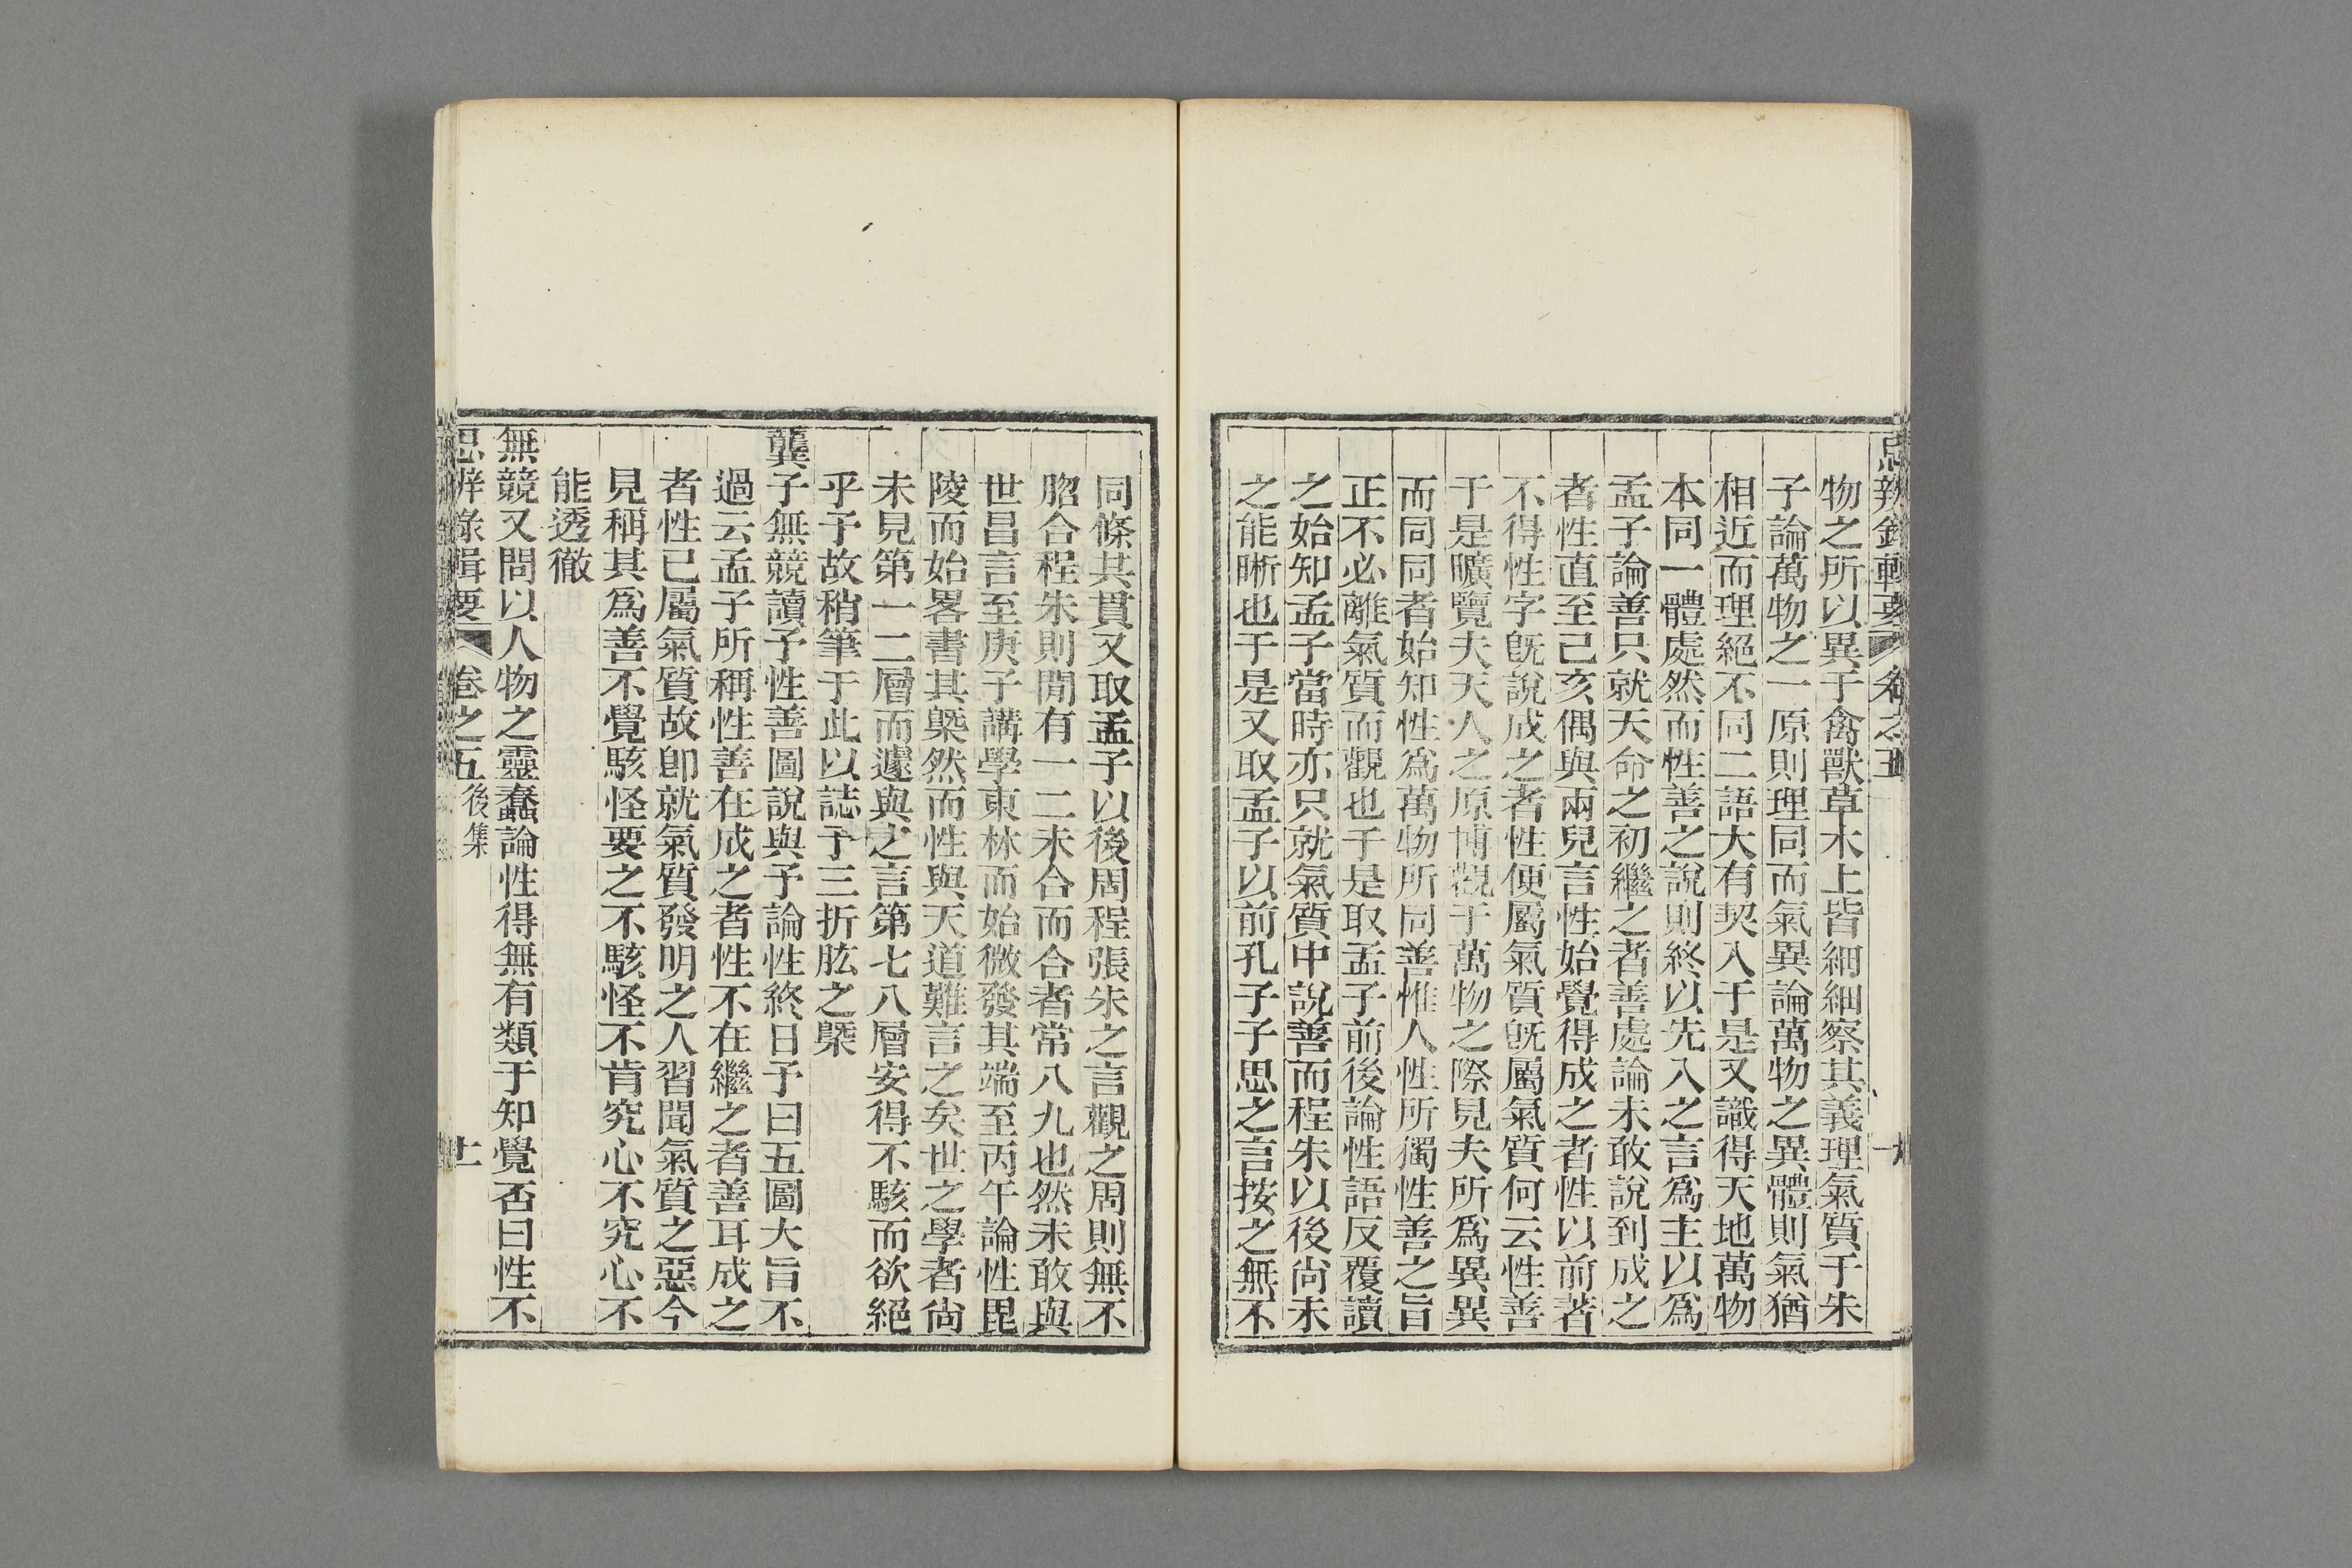 思辨錄輯要 卷之五 十
物之所以異于禽獸草木上皆細細察其義理氣質于朱
子論萬物之一原則理同而氣異論萬物之異體則氣猶
相近而理絕不同二語大有契入于是又識得天地萬物
本同一體處然而性善之說則終以先入之言爲主以爲
孟子論善只就天命之初繼之者善處論未敢說到成之
者性直至己亥偶與兩兒言性始覺得成之者性以前著
不得性字旣說成之者性便屬氣質旣屬氣質何云性善
于是曠覽夫天人之原博觀于萬物之際見夫所爲異異
而同同者始知性爲萬物所同善惟人性所獨性善之旨
正不必離氣質而觀也于是取孟子前後論性語反覆讀
之始知孟子當時亦只就氣質中說善而程朱以後尙未
之能晰也于是又取孟子以前孔子子思之言按之無不
同條其貫又取孟子以後周程張朱之言觀之周則無不
脗合程朱則閒有一二未合而合者常八九也然未敢與
世昌言至庚子講學東林而始微發其端至丙午論性毘
陵而始畧書其槩然而性與天道難言之矣世之學者尙
未見第一二層而遽與之言第七八層安得不駭而欲絕
乎予故稍筆于此以誌予三折肱之槩
龔子無競讀予性善圖說與予論性終日予曰五圖大旨不
過云孟子所稱性善在成之者性不在繼之者善耳成之
者性已屬氣質故卽就氣質發明之人習聞氣質之惡今
見稱其爲善不覺駭怪要之不駭怪不肯究心不究心不
能透徹
無競又問以人物之靈蠢論性得無有類于知覺否曰性不
思辨錄輯要 卷之五 後集 十一